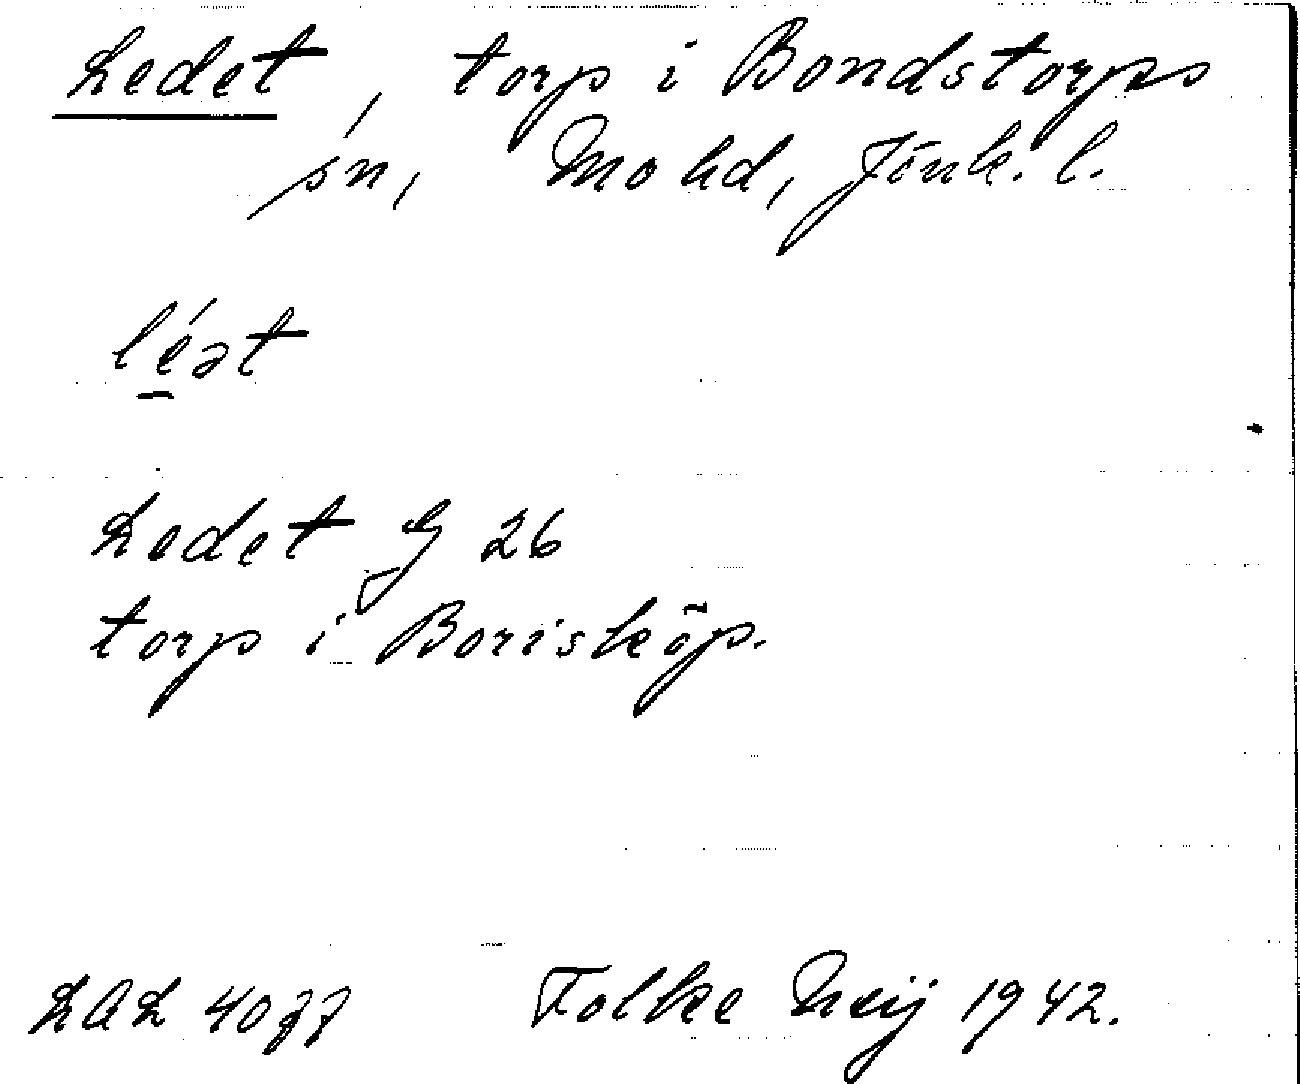 Ledet, torp i Bondstorps
sn, Mo hd, Jönk. l.
lé̱ət
Ledet G 26
torp i Borisköp.
LAL 4077 Folke Neij 1942.